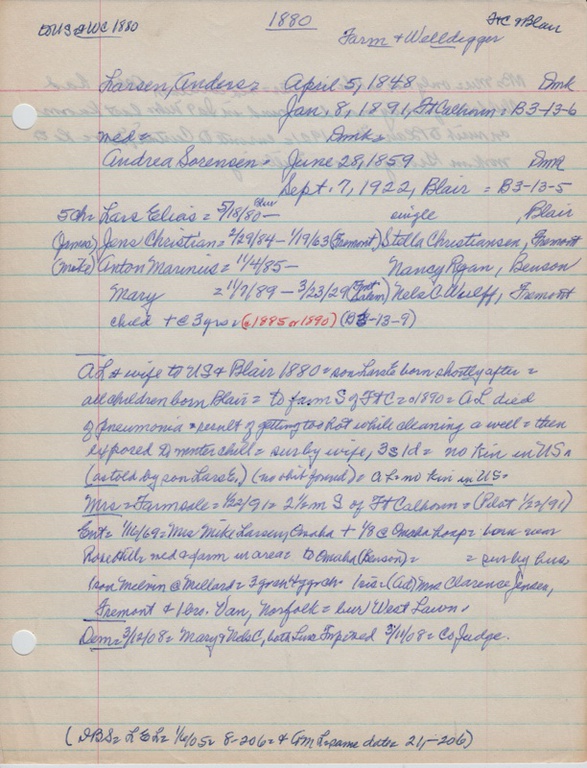 to US & WC 1880
1880
Ft C & Blair
Farm & Welldigger
Larsen, Anders = April 5, 1848 Dmk
Jan. 8, 1891, Ft Calhoun = B3-13-6
med = Dmk =
Andrea Sorensen = June 28, 1859 Dmk
Sept. 7, 1922, Blair = B3-13-5
5 ch = Lars Elias = 5/18/80 — single , Blair
(James) Jens Christian = 2/29/84 - 1/19/63 (Fremont) Stella Christiansen, Fremont
(Mike) Anton Marinus = 11/4/85 — Nancy Ryan, Benson
Mary = 11/9/89 - 3/23/29 Nels C Wulff, Fremont
child + @ 3 yrs (c 1885 or 1890) (B3-13-9)
AL & wife to US & Blair 1880 = son Lars E born shortly after =
all children born Blair = to farm S of Ft C = c1890 = AL died
of pneumonia = result of getting too hot while cleaning a well = then
exposed to winter chill = sur by wife, 3s 1d = no kin in US =
(as told by son Lars E.) (no obit found) = AL = no kin in US =
Mrs = Farm sale = 1/22/91 = 2½ m S of Ft Calhoun = (Pilot 1/22/91)
Ent = 1/16/69 = Mrs Mike Larsen, Omaha + 1/8 @ Omaha hosp = born near
Rose Hill = med = farm in area = to Omaha (Benson) = = sur by hus
1 son Melvin @ Millard = 3 grch 4 ggrch = 1 sis = (Ad) Mrs Clarence Jensen,
Fremont & 1 bro. Van, Norfolk = bur West Lawn.
Dom = 3/12/08 = Mary & Nels C, both 3/11/08 = Co Judge.
(DBS = L E L = 1/6/05 = 8-206 = & AM L = same date = 21-206)